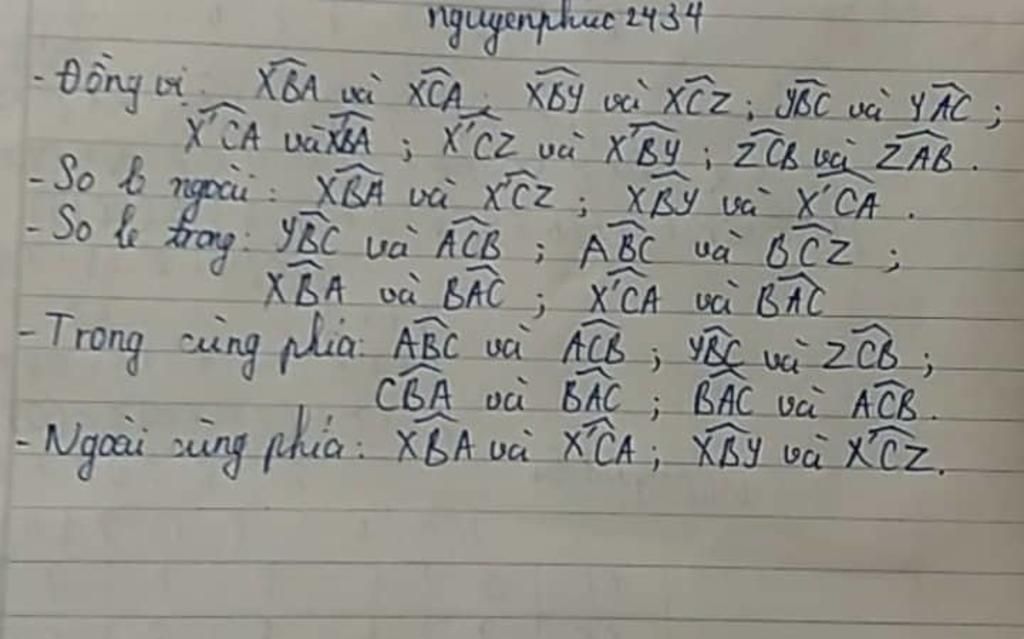 nguyenphuc2434
- Đồng vị. XBA và XCA; XBY và XCZ; YBC và YAC;
X'CA và XBA; X'CZ và X'BY; ZCB và ZAB.
- So le ngoài: XBA và X'CZ; XBY và X'CA.
- So le trong: YBC và ACB; ABC và BCZ;
XBA và BAC; X'CA và BAC
- Trong cùng phía: ABC và ACB; YBC và ZCB;
CBA và BAC; BAC và ACB.
- Ngoài cùng phía: XBA và X'CA; XBY và X'CZ.